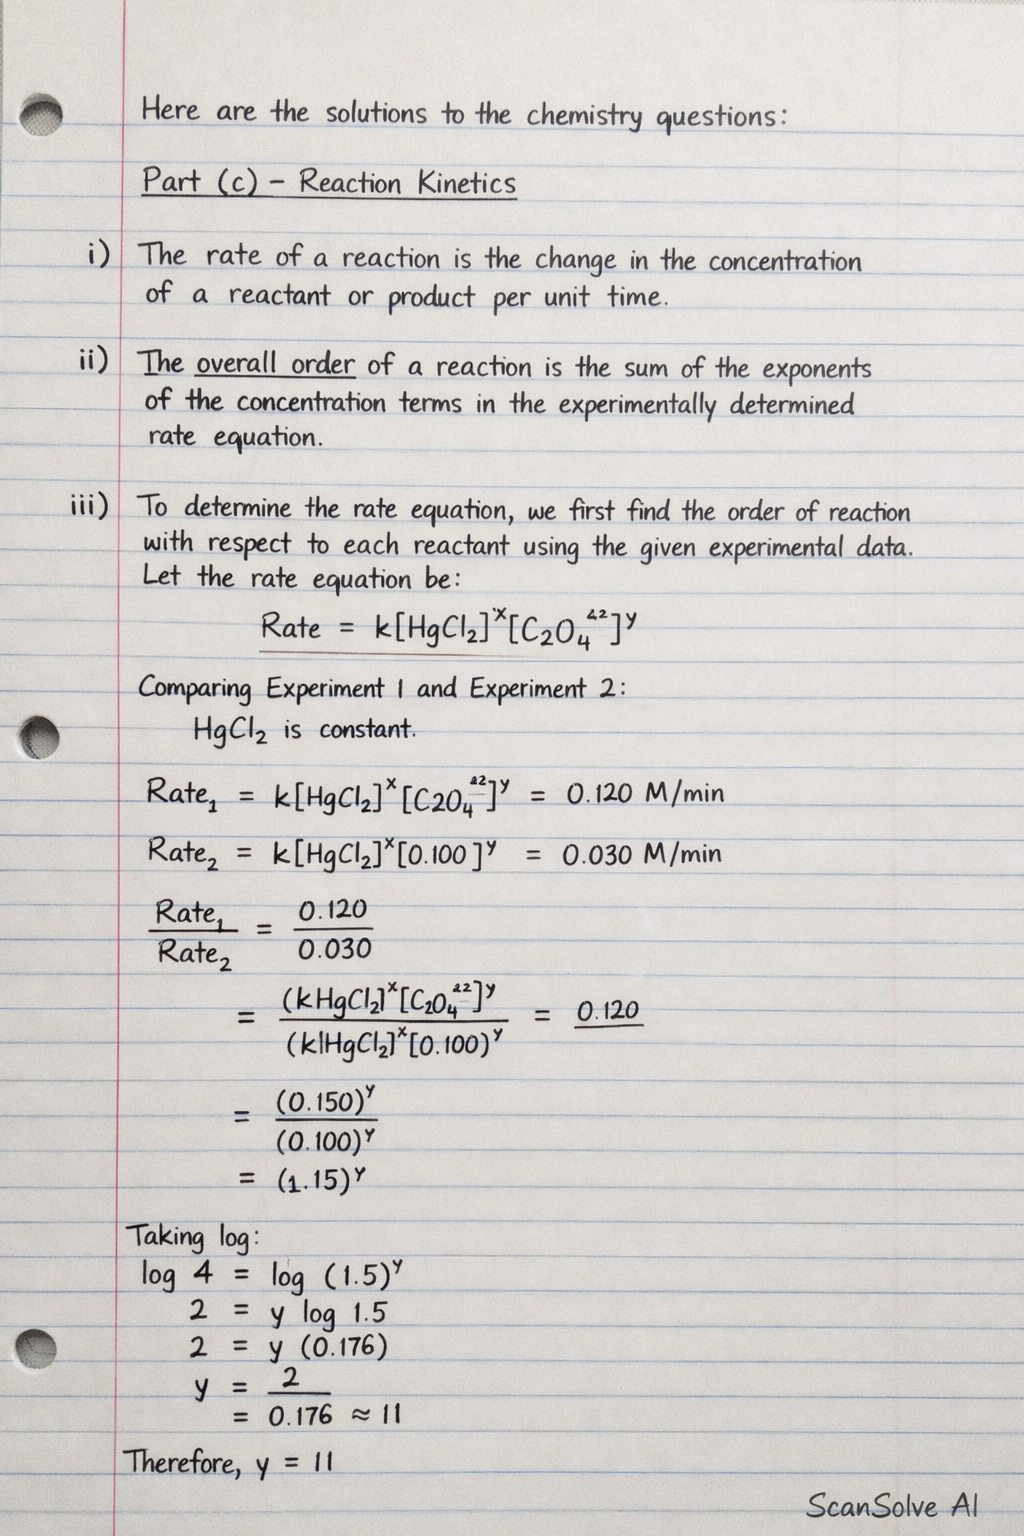 Here are the solutions to the chemistry questions:
Part (c) – Reaction Kinetics
i) The rate of a reaction is the change in the concentration
of a reactant or product per unit time.
ii) The overall order of a reaction is the sum of the exponents
of the concentration terms in the experimentally determined
rate equation.
iii) To determine the rate equation, we first find the order of reaction
with respect to each reactant using the given experimental data.
Let the rate equation be:
Rate = k[HgCl₂]ˣ[C₂O₄²²]ʸ
Comparing Experiment 1 and Experiment 2:
HgCl₂ is constant.
Rate₁ = k[HgCl₂]ˣ[C2O₄²²]ʸ = 0.120 M/min
Rate₂ = k[HgCl₂]ˣ[0.100]ʸ = 0.030 M/min
Rate₁ / Rate₂ = 0.120 / 0.030
= (kHgCl₂]ˣ[C₂O₄²²]ʸ / (k|HgCl₂]ˣ[0.100)ʸ = 0.120
= (0.150)ʸ / (0.100)ʸ
= (1.15)ʸ
Taking log:
log 4 = log (1.5)ʸ
2 = y log 1.5
2 = y (0.176)
y = 2
= 0.176 ≈ 11
Therefore, y = 11
ScanSolve AI